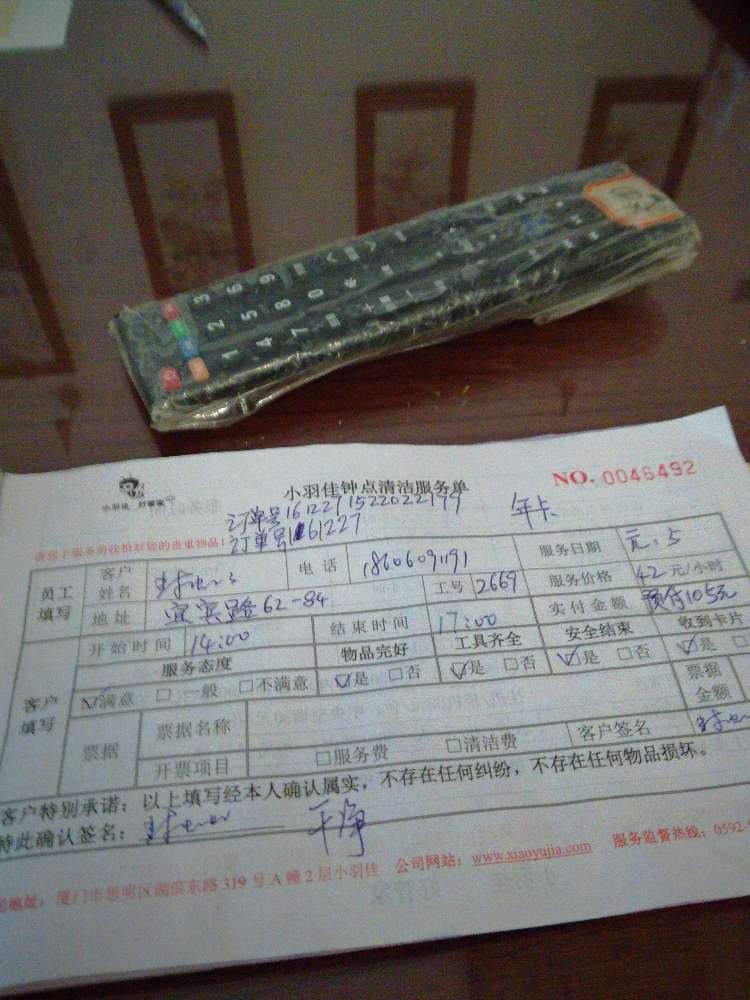 3 6 9
2 5 8 0 *
1 4 7
小羽佳 好管家
小羽佳钟点清洁服务单
NO. 0046492
订单号1612271522022179 年卡
请您于服务前收拾好您的贵重物品!
订单号161227
员工填写 客户姓名 电话 18606091191 服务日期 元.5
地址 宜宾路62-84 工号 2669 服务价格 42元/小时
开始时间 14:00 结束时间 17:00 实付金额 预付105元
服务态度 物品完好 工具齐全 安全结束 收到卡片
客户填写 ☑满意 □一般 □不满意 ☑是 □否 ☑是 □否 ☑是 □否 ☑是
票据 票据名称 票据金额
开票项目 □服务费 □清洁费 客户签名
客户特别承诺:以上填写经本人确认属实,不存在任何纠纷,不存在任何物品损坏。
特此确认签名: 干净
地址:厦门市思明区湖滨东路319号A幢2层小羽佳 公司网站:www.xiaoyujia.com 服务监督热线:0592-